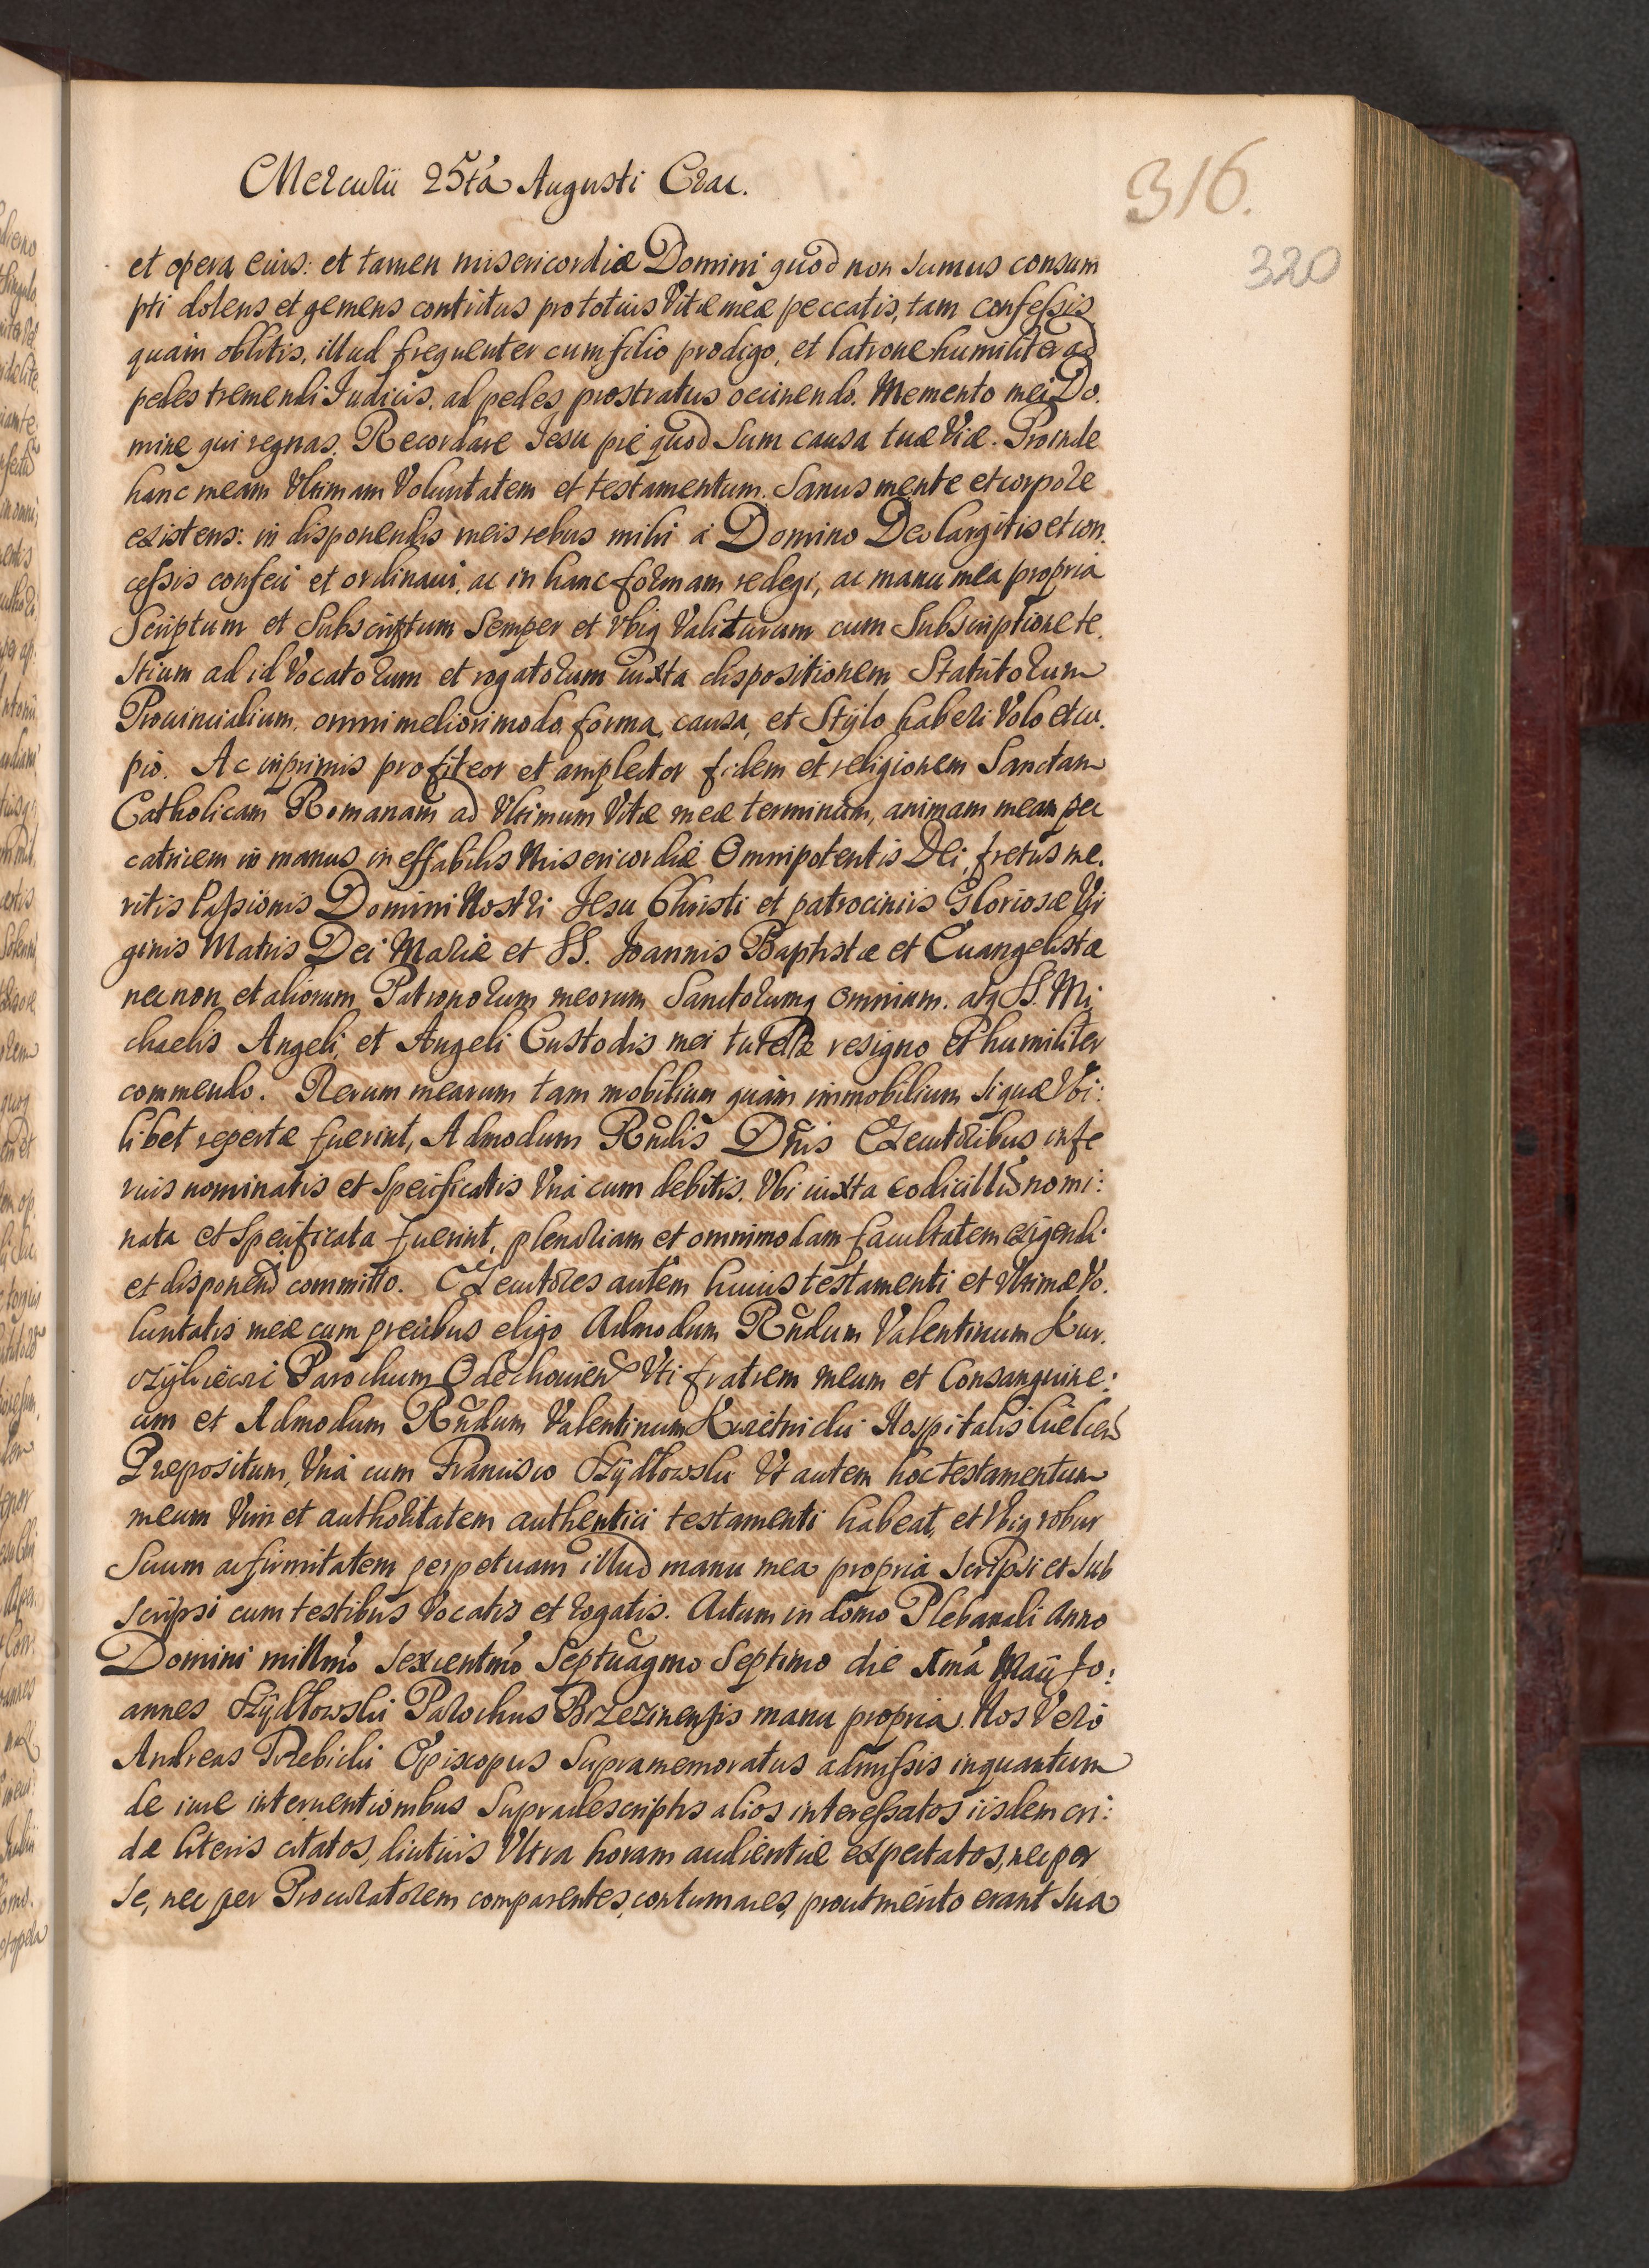 Mercurii 25tá Augusti Crac.
316.
320
et opera eius: et tamen misericordiæ Domini quod non sumus consum
pti dolens et gemens contritus pro totius Vitæ meæ peccatis, tam confessis
quàm oblitis, illud frequenter cum filio prodigo, et latrone humiliter ad
pedes tremendi Iudicis, ad pedes prostratus occinendo. Memento mei Do.
mine qui regnas. Recordare Iesu pie quod sum causa tuæ Viæ. Proinde
hanc meam Vltimam Voluntatem et testamentum. Sanus mente et corpore
existens: in disponendis meis rebus mihi à Domino Deo largitis et con.
cessis confeci et ordinaui, ac in hanc formam redegi, ac manu mea propria
Scriptum et Subscriptum Semper et Vbiq Valiturum cum Subscriptione te.
stium ad id Vocatorum et rogatorum iuxta dispositionem Statutorum
Prouincialium, omni meliori modo, forma, causa, et Stylo haberi Volo et cu.
pio. Ac inprimis profiteor et amplector fidem et religionem Sanctam
Catholicam Romanam ad Vltimum Vitæ meæ terminum, animam meam pec
catricem in manus ineffabilis Misericordiæ Omnipotentis Dei, fretus me.
ritis Passionis Domini Nostri Jesu Christi et patrociniis Gloriosæ Vir
ginis Matris Dei Mariæ et SS. Joannis Baptistæ et Euangelistæ
necnon et aliorum Patronorum meorum Sanctorumq omnium. atq SS. Mi
chaelis Angeli, et Angeli Custodis mei tutelæ resigno et humiliter
commendo. Rerum mearum tam mobilium quàm immobilium siquæ Vbi:
libet repertæ fuerint, Admodum Rndis Dnis Exeutoribus infe
rius nominatis et Specificatis Vná cum debitis. Vbi iuxta codicillŭ nomi:
nata et Specificata fuerint, plenariam et omnimodam facultatem exigendi
et disponend committo. Exeutores autem huius testamenti et Vltimæ Vo.
luntatis meæ cum precibus eligo Admodum Rndum Valentinum Kur.
Parochum Odechouien Vti fratrem meum et Consanguine:
um et Admodum Rndum Valentinum Hospitalis Cielcen
Præpositum, Vná cum Francisco Szÿdłowski Vt autem hoc testamentum
meum Vim et authoritatem authentici testamenti habeat, et Vbiq robur
Suum ac firmitatem perpetuam illud manu mea propriá Scripsi et Sub
scripsi cum testibus Vocatis et rogatis. Actum in domo Plebanali Anno
Domini millmo Sexcentmo Septuagmo Septimo die Xmá Maÿ Jo:
annes Szÿdłowski Parochus Brzezinensis manu propria. Nos Verò
Andreas Trzebicki Episcopus Supramemoratus admissis inquantum
de iure interuentionibus Supradescriptis alios interessatos iisdem cri:
dæ literis citatos, diutius Vltra horam audientiæ expectatos, nec per
se, nec per Procuratorem comparentes, contumaces, prout merito erant Sua